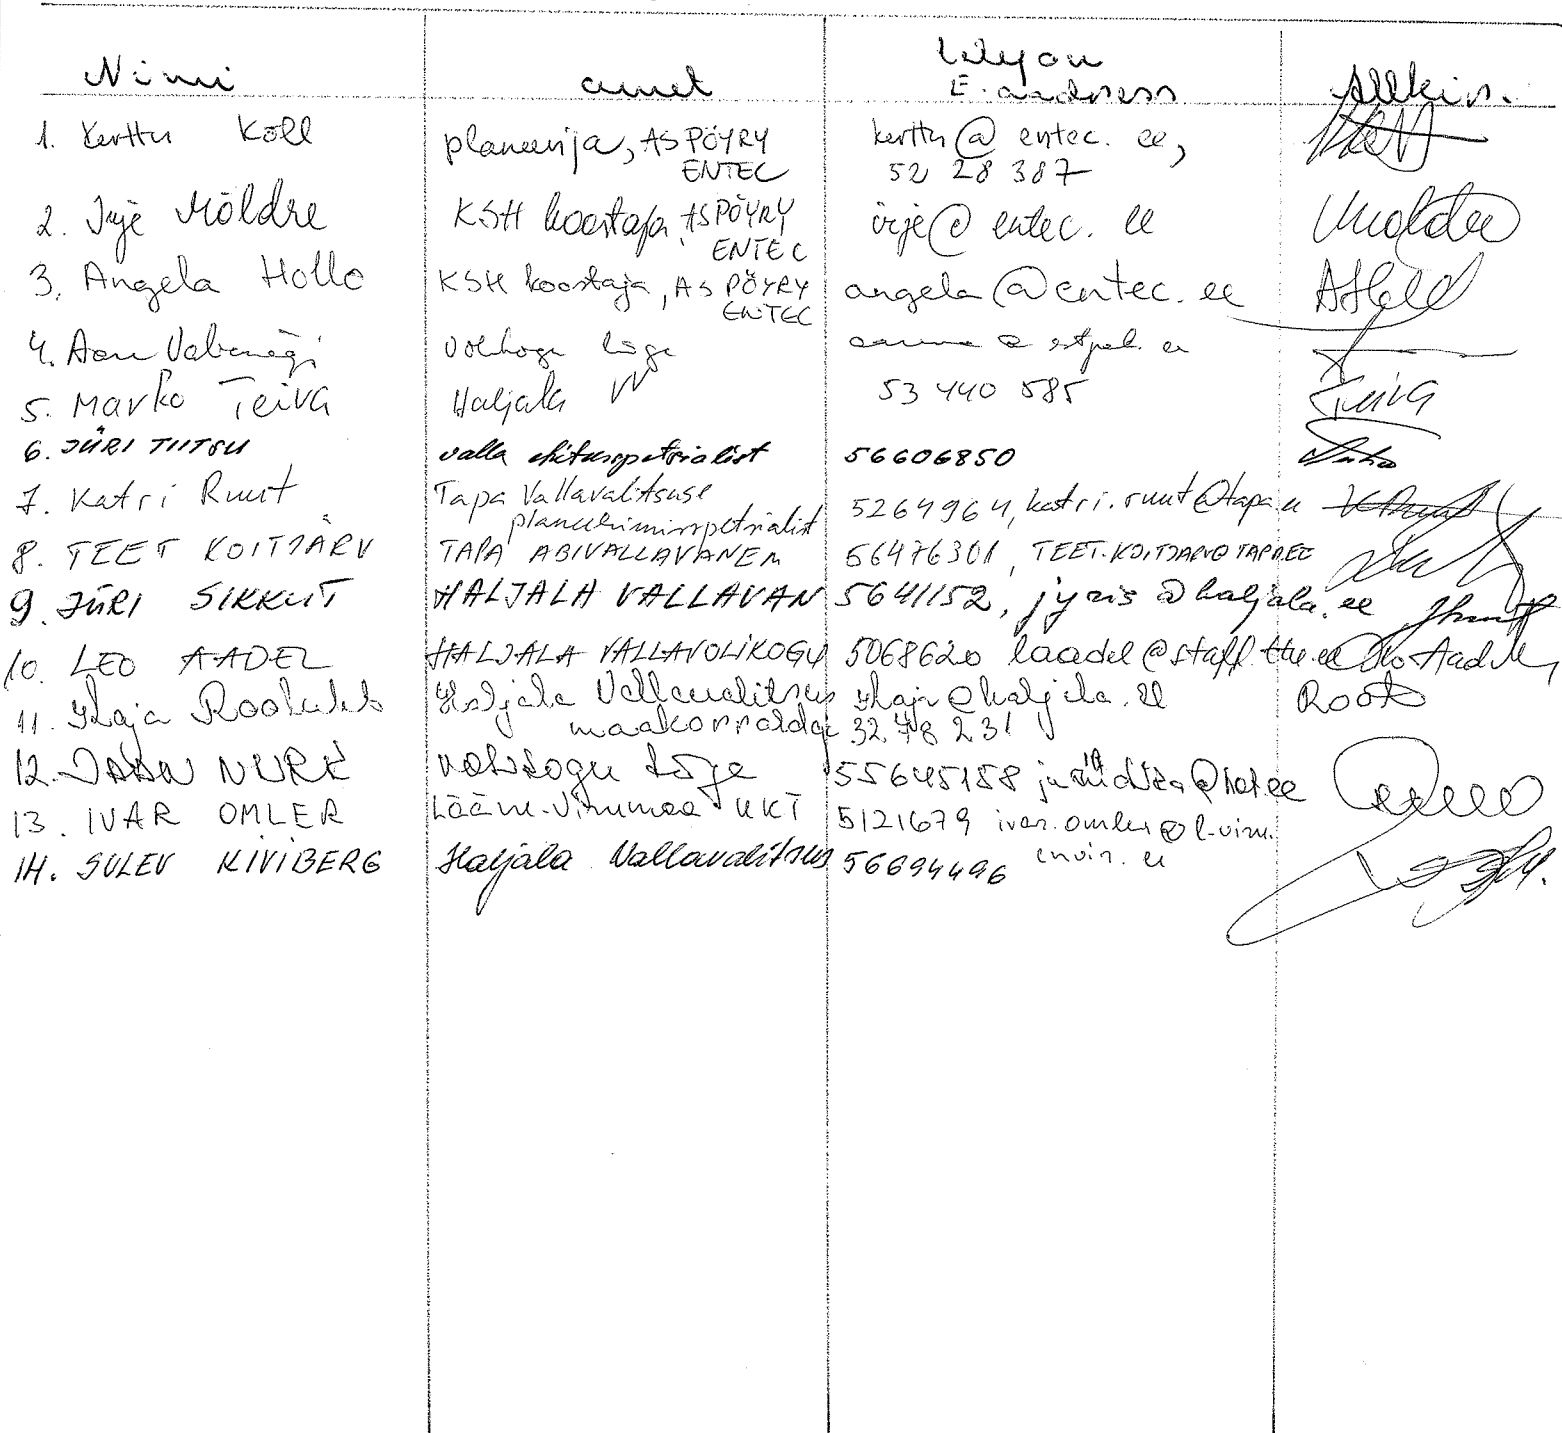 Nimi amet telefon E. aadress Allkiri.
1. Kerttu Köll planeerija, AS PÖYRY ENTEC kerttu@entec.ee, 52 28 387
2. Irje Möldre KSH koostaja, AS PÖYRY ENTEC irje@entec.ee Möldre
3. Angela Hollo KSH koostaja, AS PÖYRY ENTEC angela@entec.ee AHoll
4. volikogu liige
5. Marko Teiva Haljala VV 53 440 585 Teiva
6. JÜRI TIITSU valla ehitusspetsialist 56606850
7. Katri Ruut Tapa Vallavalitsuse planeerimisspetsialist 5264964, katri.ruut@tapa.ee
8. TEET KOITJÄRV TAPA ABIVALLAVANEM 56476301, TEET.KOITJARV@TAPA.EE
9. JÜRI SIKKUT HALJALA VALLAVAN 5641152, jyris@haljala.ee
10. LEO AADEL HALJALA VALLAVOLIKOGU 5068620 laadel@staff.ttu.ee Leo Aadel
11. Haljala Vallavalitsus maakorraldaja 32 48 231 Root
12. JAAN NURK volikogu liige 55645158
13. IVAR OMLER Lääne-Virumaa KKT 5121679 ivar.omler@l-viru.envir.ee
14. SULEV KIVIBERG Haljala Vallavalitsus 56694496